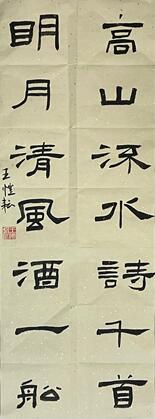 高山流水詩千首
明月清風酒一船
王愷耘